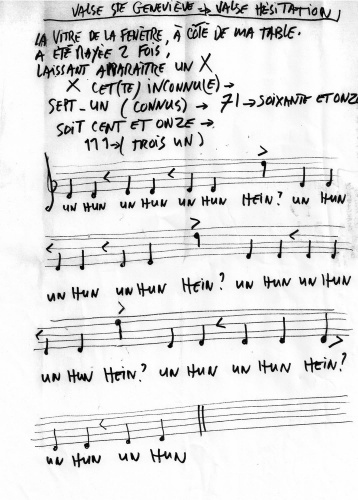 VALSE STE GENEVIÈVE → VALSE HÉSITATION
LA VITRE DE LA FENÊTRE, À CÔTÉ DE MA TABLE.
A ÉTÉ RAYÉE 2 FOIS,
LAISSANT APPARAÎTRE UN X
X CET(TE) INCONNU(E) →
SEPT-UN (CONNUS) → 71 → SOIXANTE ET ONZE
SOIT CENT ET ONZE →
111 → (TROIS UN)
UN HUN UN HUN UN HUN HEIN? UN HUN
UN HUN UN HUN HEIN? UN HUN UN HUN
UN HUN HEIN? UN HUN UN HUN HEIN?
UN HUN UN HUN